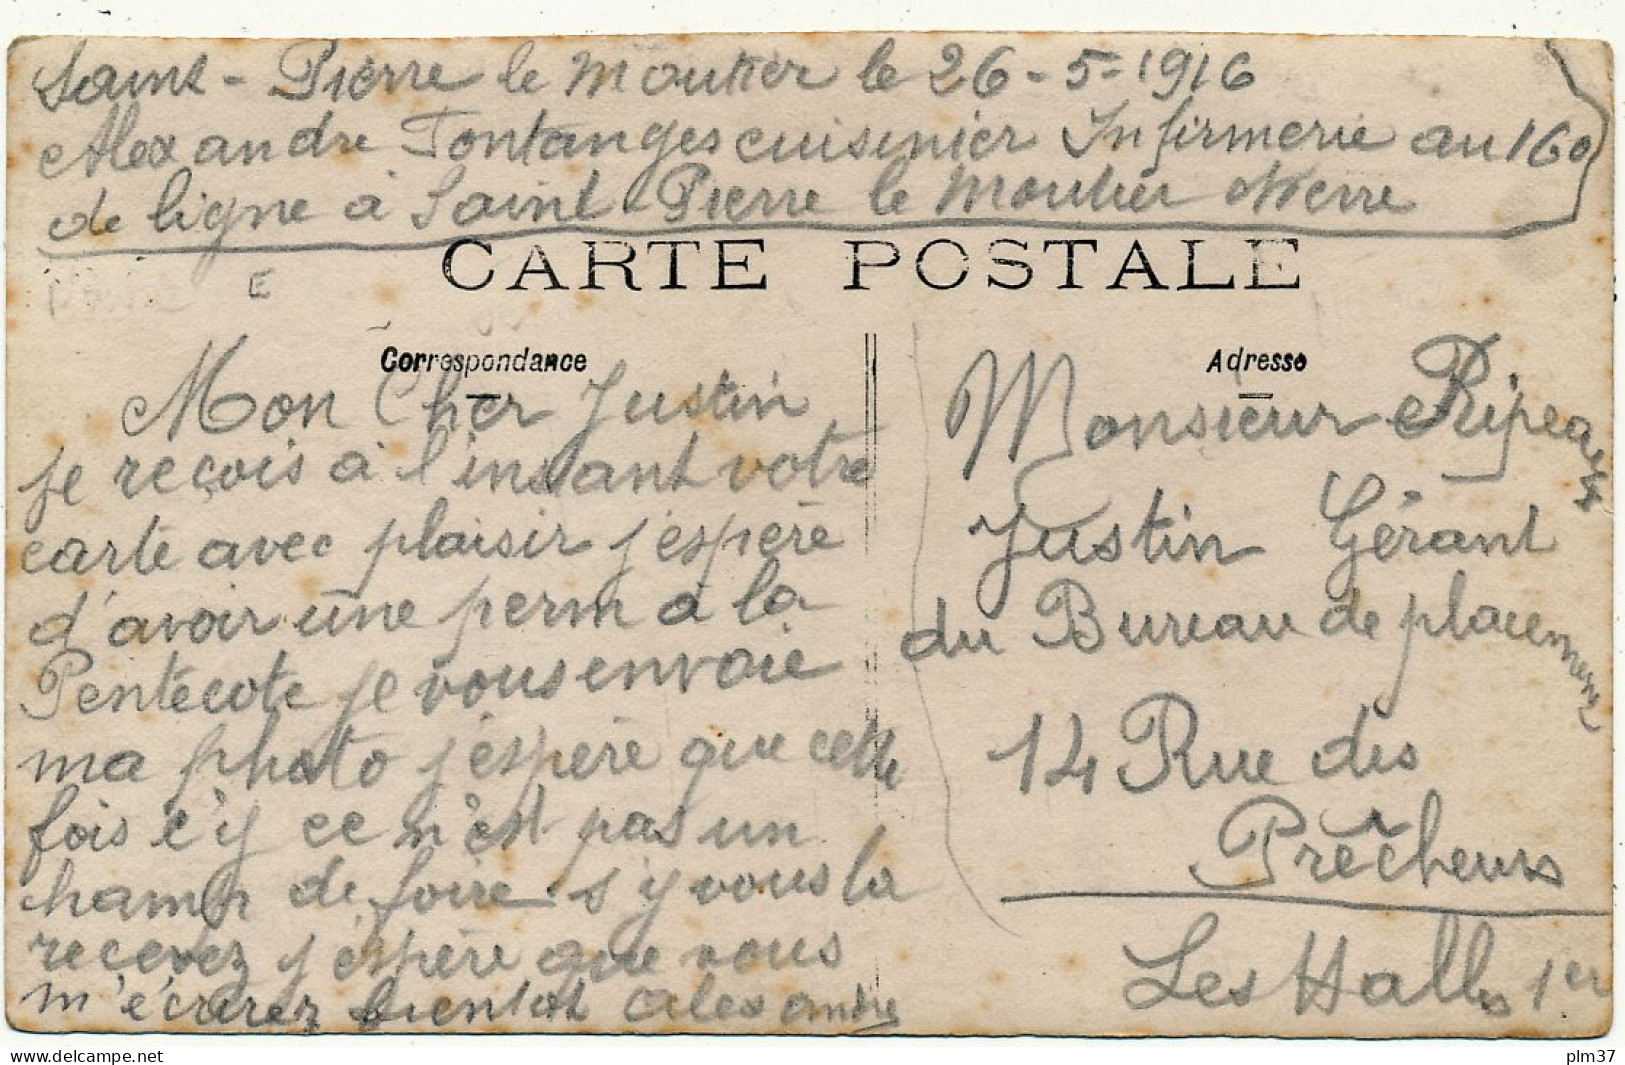 Saint-Pierre le Moutier le 26-5-1916
Alexandre Fontanges cuisinier Infirmerie au 160
de ligne à Saint Pierre le Moutier Nierre
CARTE POSTALE
E
Correspondance
Adresse
Mon Cher Justin
je reçois à l'instant votre
carte avec plaisir j'espère
d'avoir une perm a la
Pentecote je vous envoie
ma photo j'espère que cette
fois c'y ce n'est pas un
champ de foire s'y vous la
recevez j'espère que vous
m'écrirez bientot Alexandre
Monsieur Ripeaux
Justin Gérant
du Bureau de placement
14 Rue des
Prêcheurs
Les Halles 1er
https://www.delcampe.net
plm37